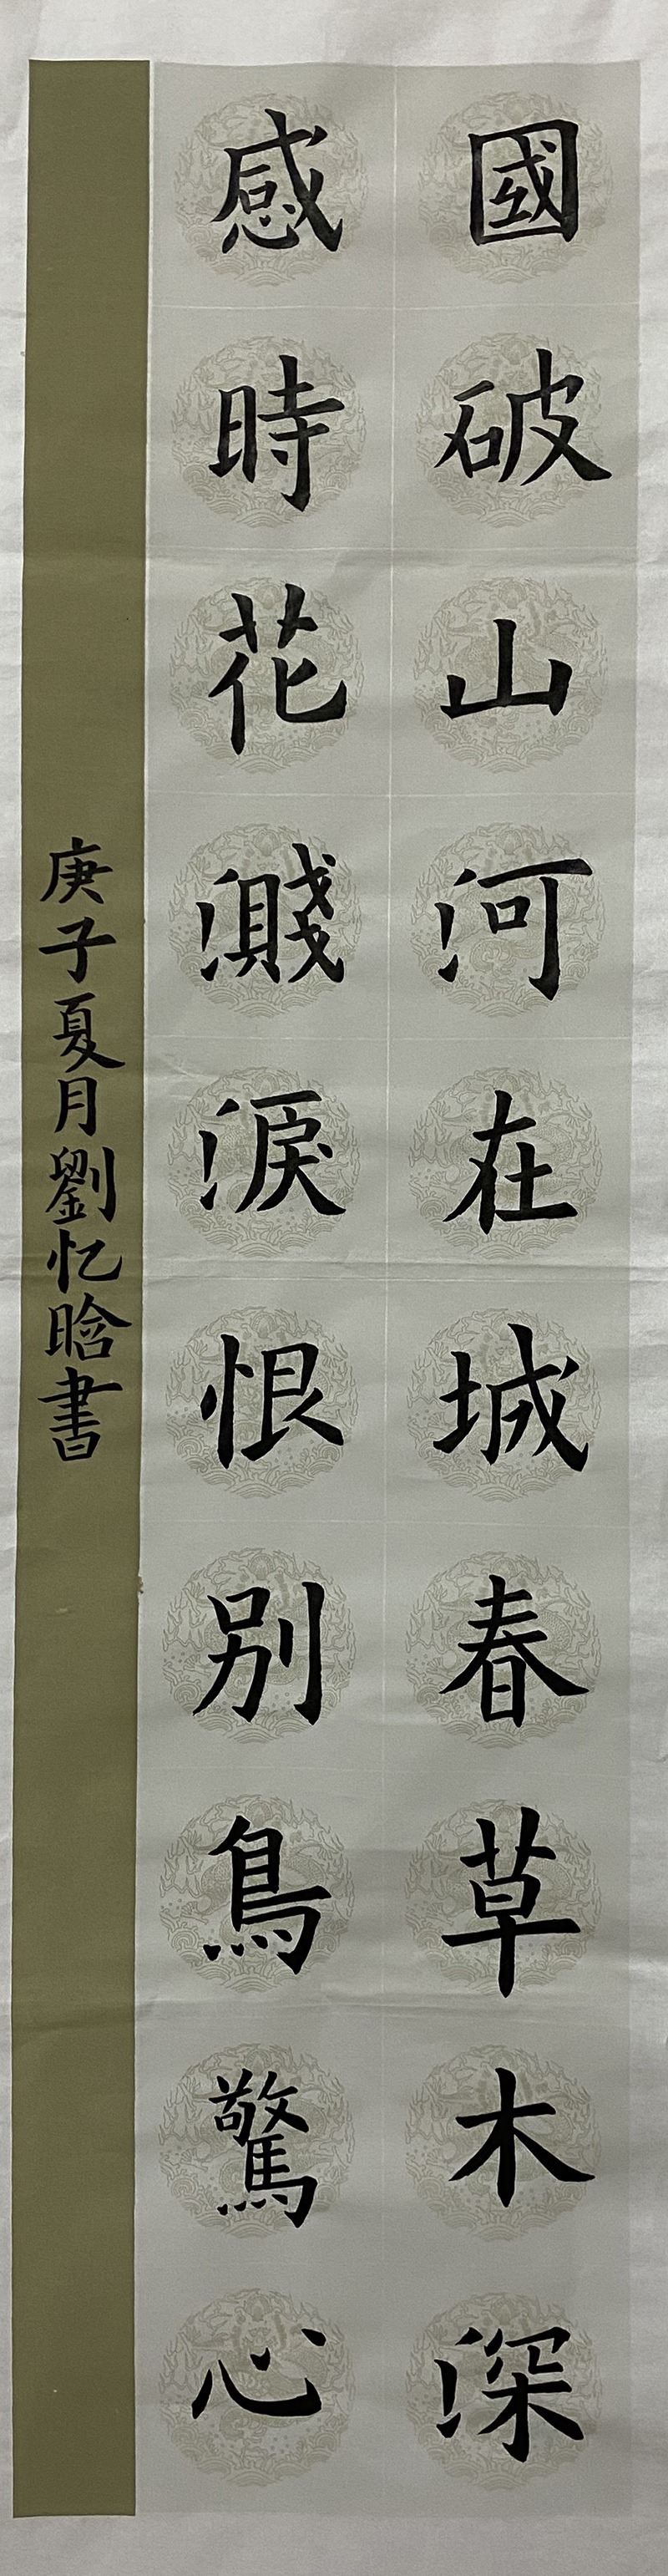 國破山河在城春草木深
感時花濺淚恨別鳥驚心
庚子夏月劉忆晗書